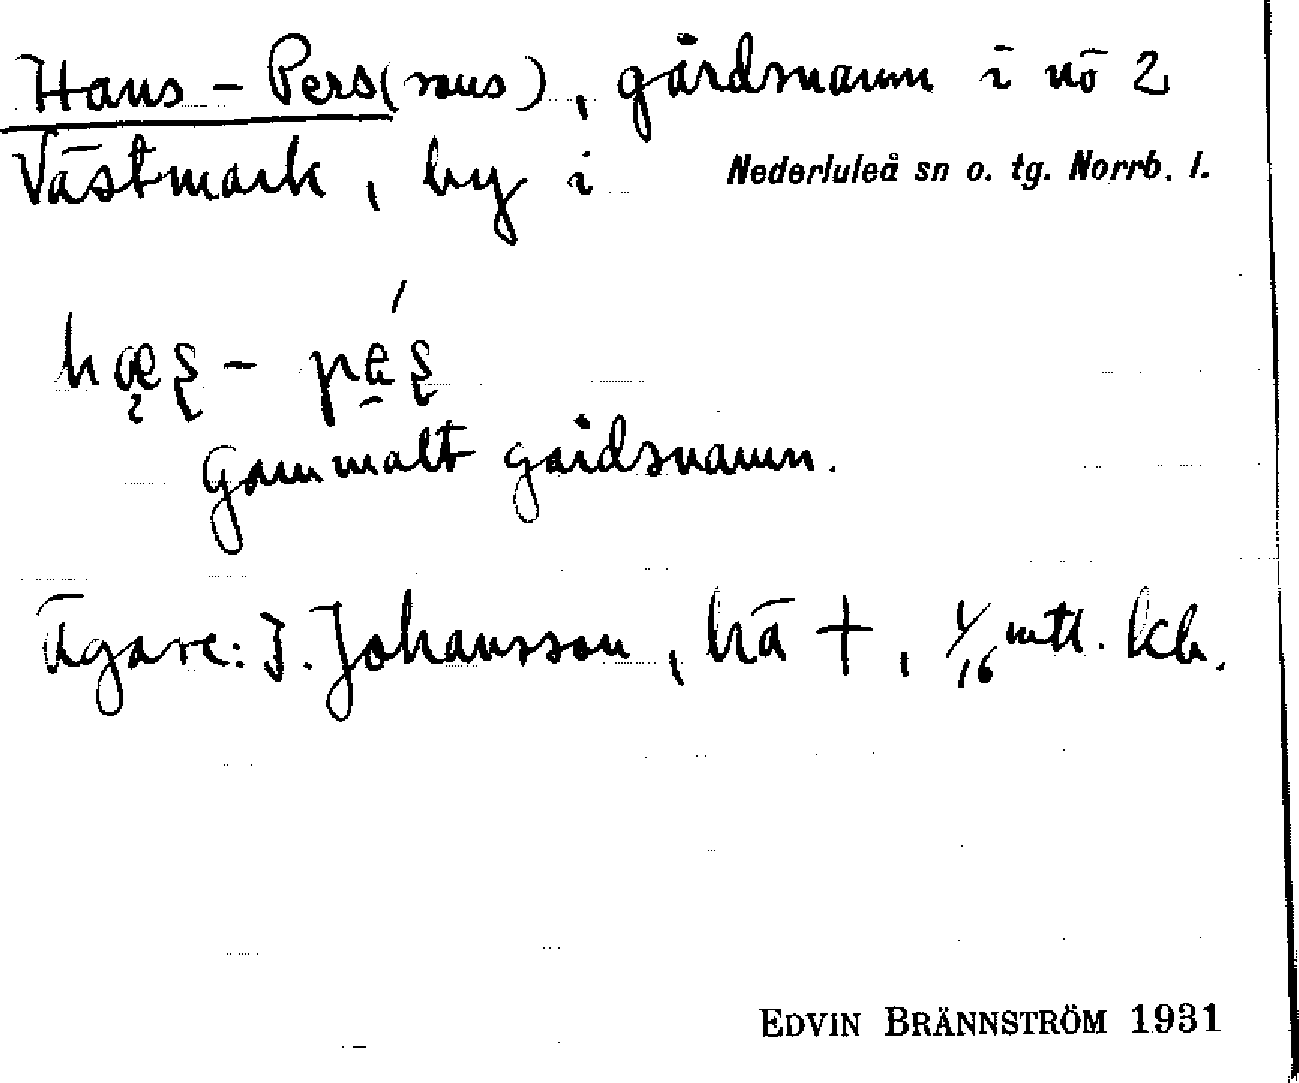 Hans-Pers(sons), gårdsnamn i nö 2
Västmark, by i Nederluleå sn o. tg. Norrb. l.
Gammalt gårdsnamn.
Ägare: J. Johansson, hä †, 1/16 mtl. kb.
EDVIN BRÄNNSTRÖM 1931